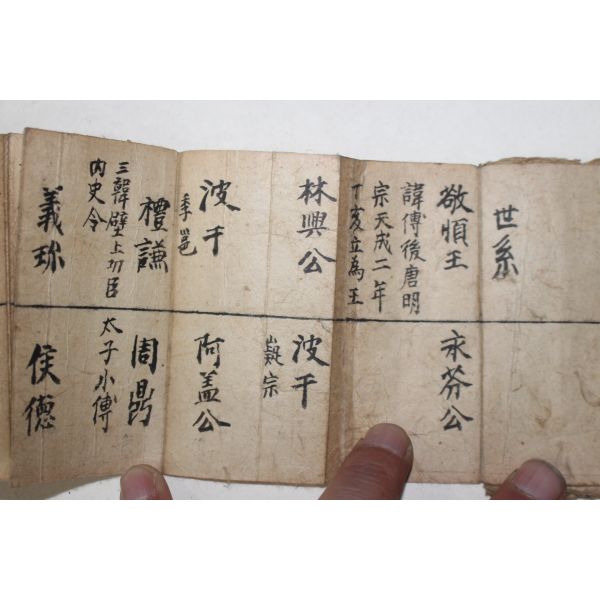 世系
敬順王
諱傅後唐明
宗天成二年
丁亥立為王
永芬公
林興公
波干
宗
波干
季邕
阿盖公
禮謙
三韓壁上功臣
內史令
周鼎
太子小傅
義珎
侯德